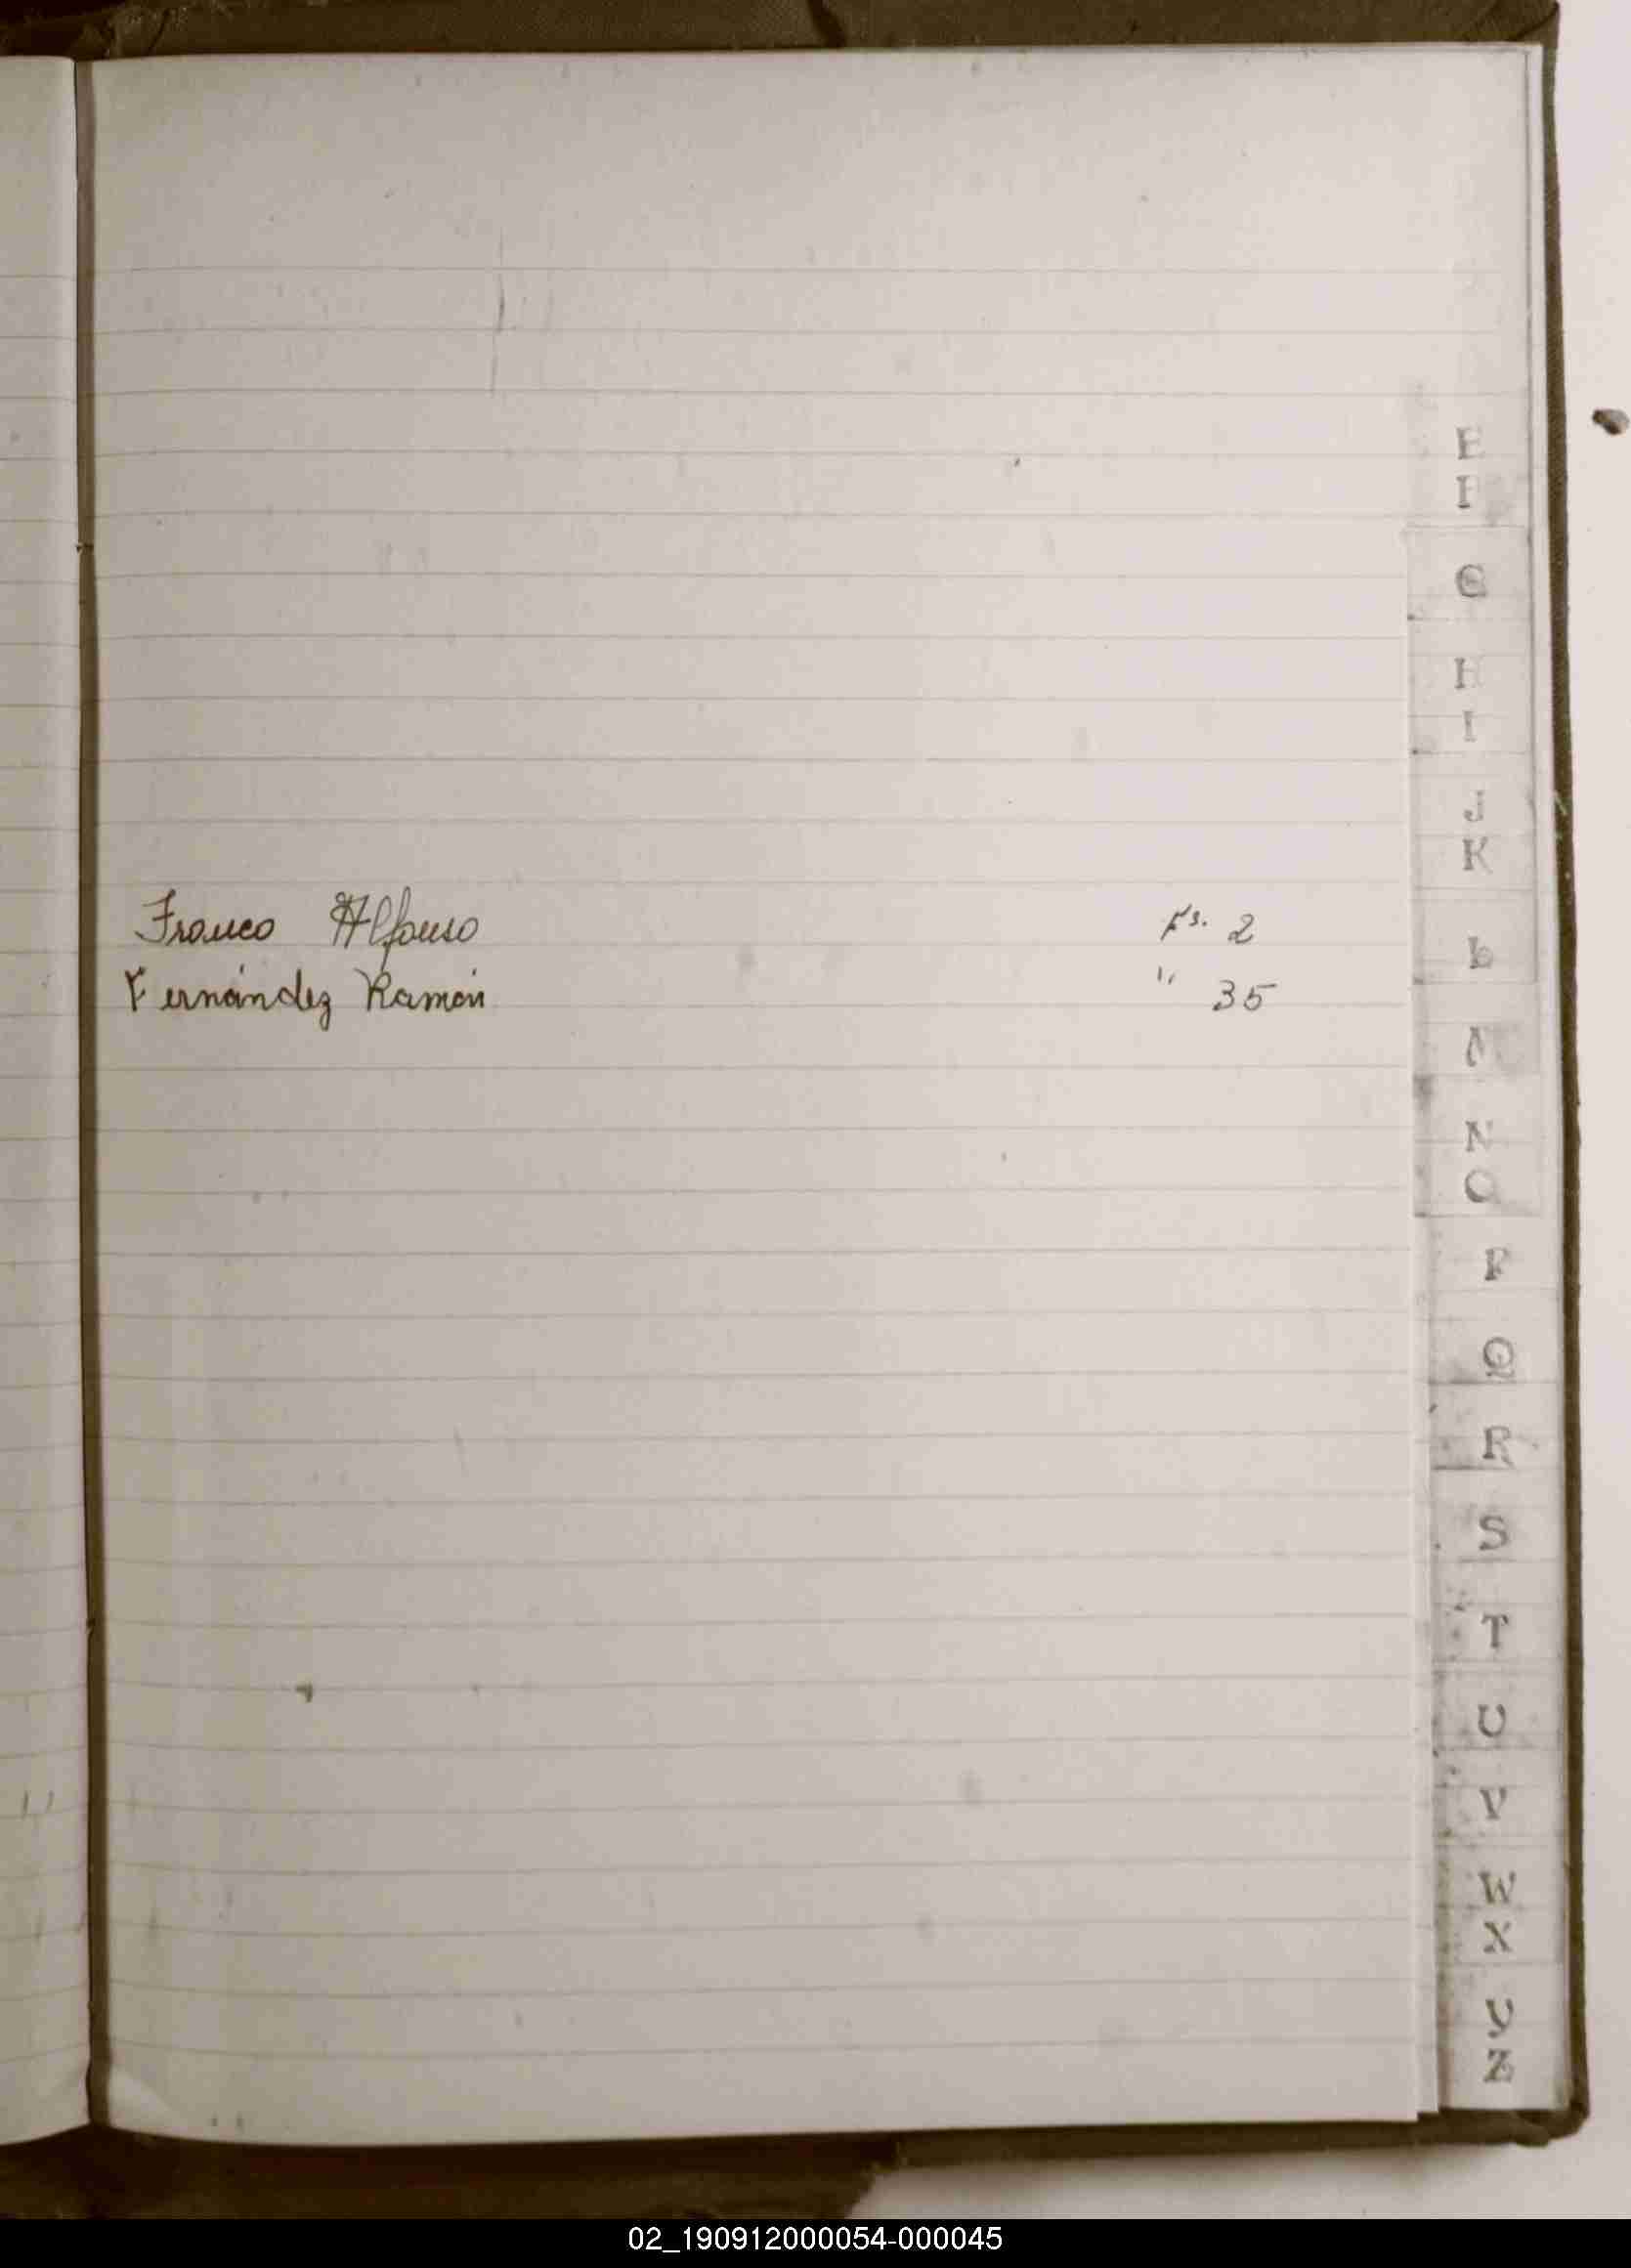 Franco Alfonso Fs. 2
Fernández Ramón " 35
E
F
G
H
I
J
K
L
M
N
O
P
Q
R
S
T
U
V
W
X
Y
Z
02_190912000054-000045